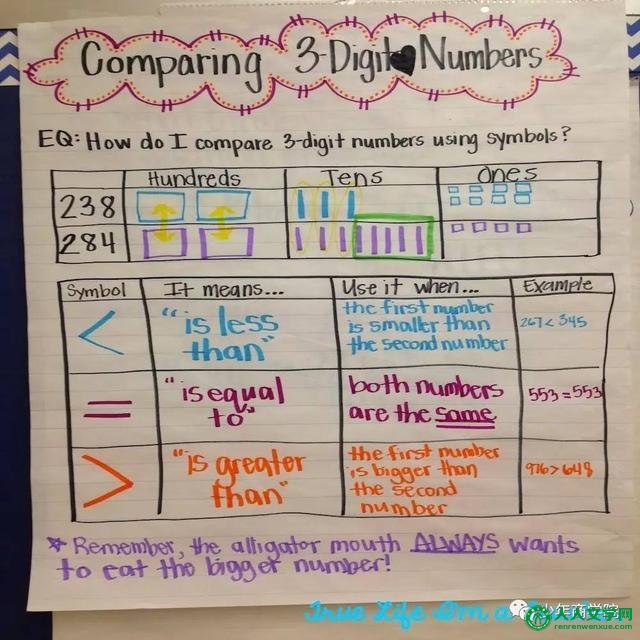 Comparing 3-Digit Numbers
EQ: How do I compare 3-digit numbers using symbols?
Hundreds Tens Ones
238
284
Symbol It means... Use it when... Example
< "is less than" the first number is smaller than the second number 267 < 345
= "is equal to" both numbers are the same 553 = 553
> "is greater than" the first number is bigger than the second number 976 > 648
* Remember, the alligator mouth ALWAYS wants
to eat the bigger number!
True Life I'm a
人人文学网
renrenwenxue.com